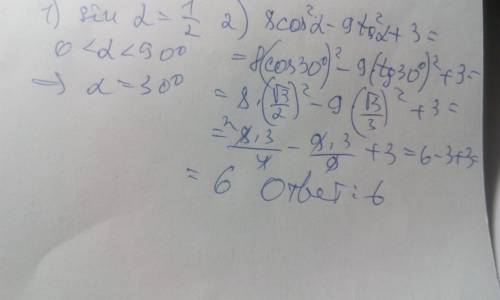 1) sin α = 1/2
0 < α < 90°
⇒ α = 30°
2) 8cos²α - 9tg²α + 3 =
= 8(cos30°)² - 9(tg30°)² + 3 =
= 8·(√3/2)² - 9(√3/3)² + 3 =
= ²8·3/4 - 9·3/9 + 3 = 6 - 3 + 3 =
= 6 Ответ: 6